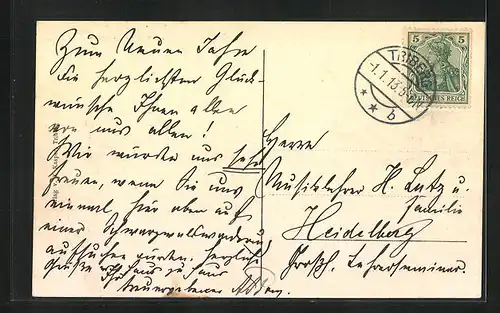 Zum Neuen Jahre
die herzlichsten Glück-
wünsche Ihnen allen
von uns allen!
Wir würden uns sehr
freuen, wenn Sie uns
einmal hier oben auf
einer Schwarzwaldwanderung
aufsuchen würden. Herzliche
Grüße von Haus zu Haus
Ihr
treuergebener
5 5
TRIBERG
1.1.13.
* * b
DEUTSCHES REICH
Herrn
Musiklehrer H. Lutz u.
Familie
Heidelberg
Großh. Lehrerseminar.